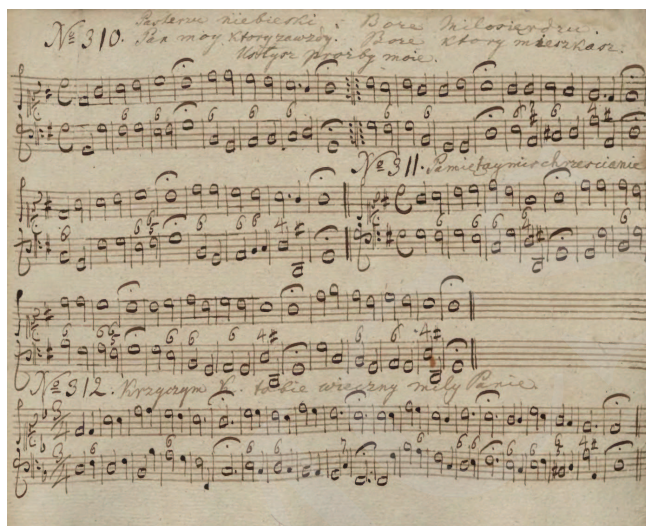 Pasterzu niebieski : Boże Miłosierdzu.
No 310. Pan moy ktory zawżdy. Boże ktory mieszkasz.
Usłysz prożby moie.
No 311. Pamiętaymis chrzescianie
No 312. Krzyczym k. tobie wieczny miły Panie